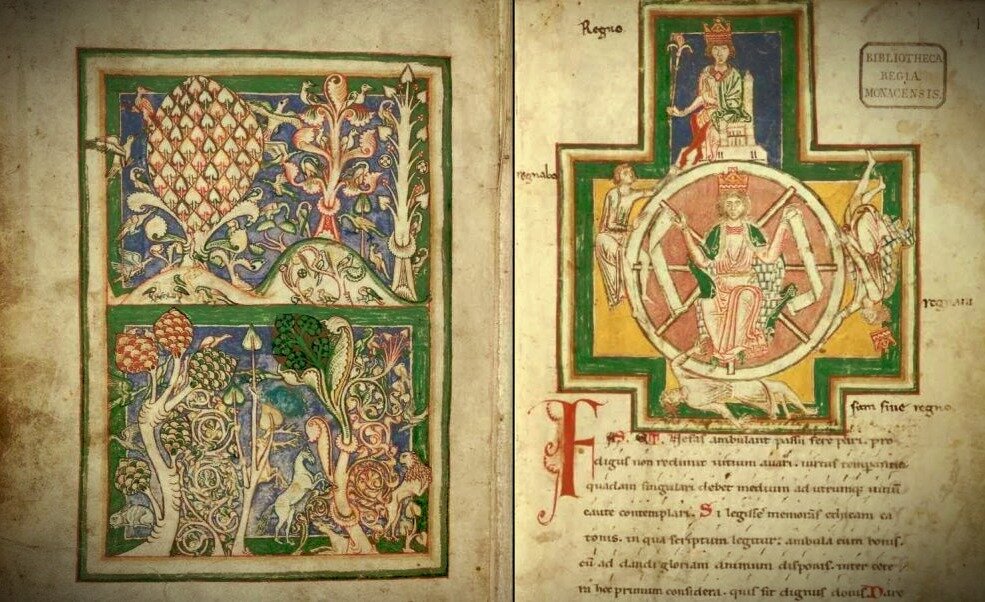 Regno
BIBLIOTHECA
REGIA
MONACENSIS.
regnabo
regnaui
sum sine regno.
Fas et Nefas ambulant passu fere pari. pro
digus non redimit uitium auari. uirtus temperantia
quadam singulari debet medium ad utrumq; uitiū
caute contemplari. Si legisse memoras ethicam ca
tonis. in qua scriptum legitur: ambula cum bonis.
cū ad dandi gloriam animum disponis. inter cete
ra hec primum considera. quis sit dignus donis. Dare